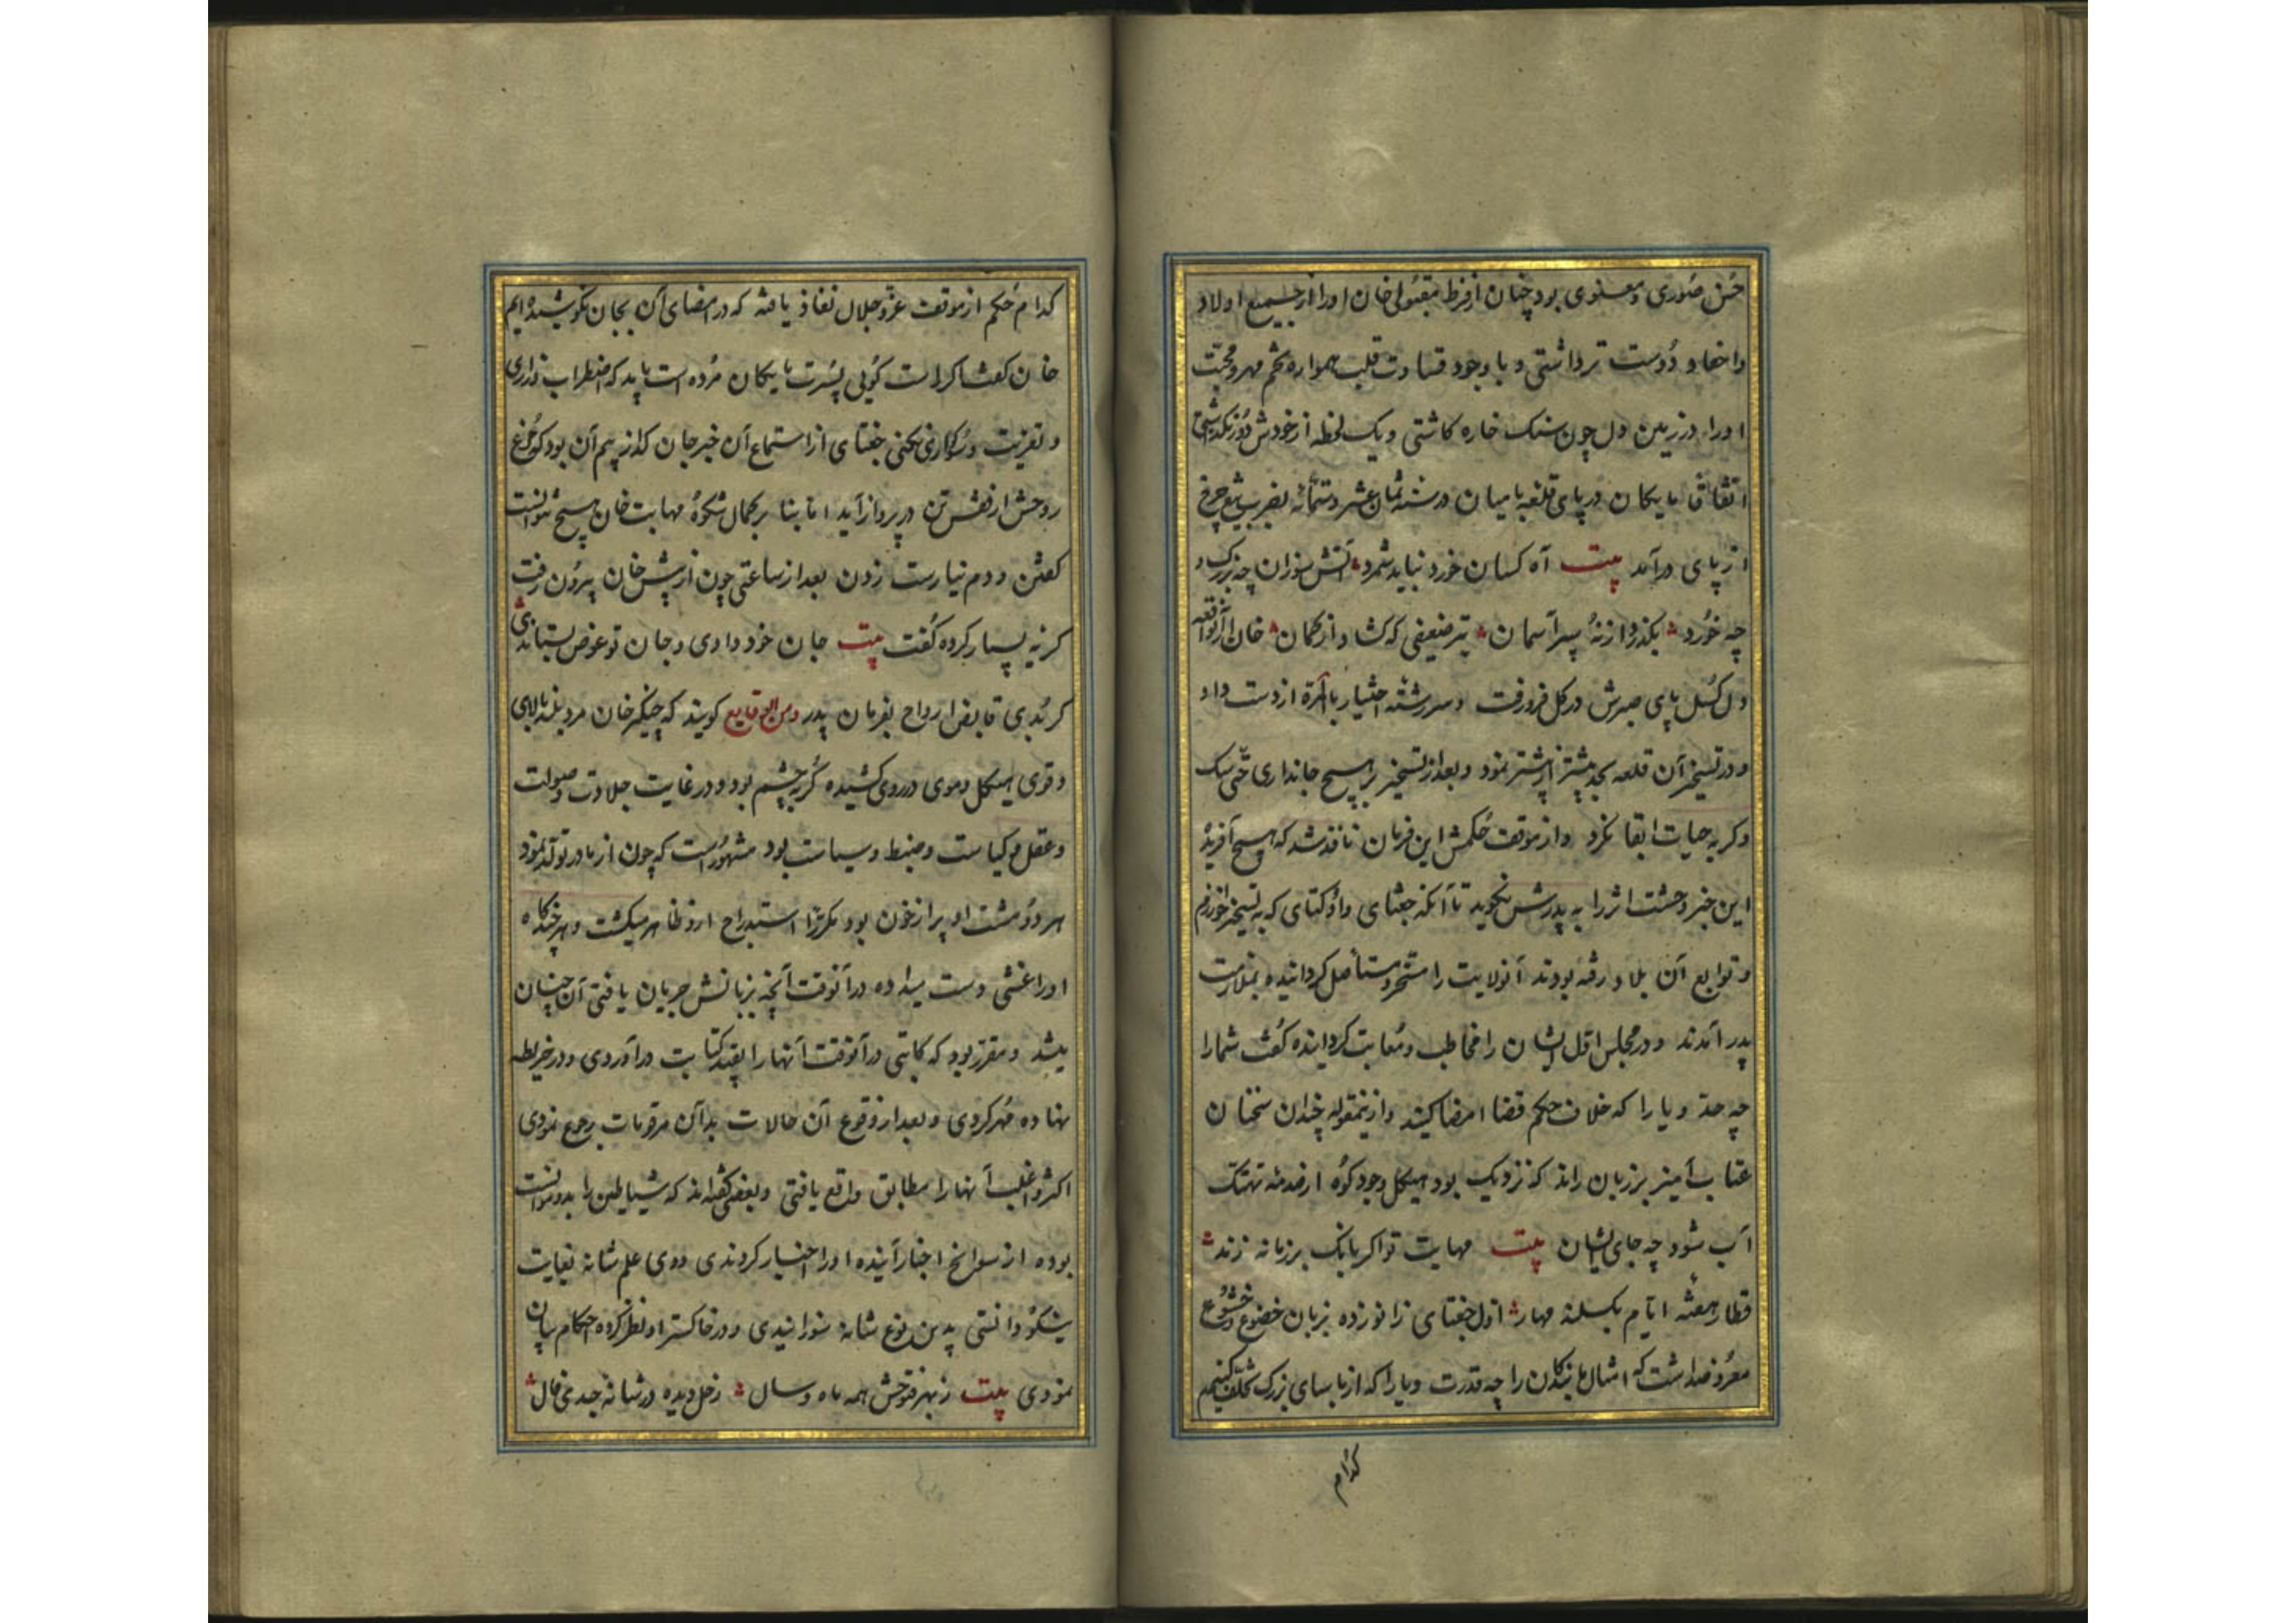 حسن صوری و معنوی بود چنان از فرط مقبولی خان او را از جمیع اولاد
واحفاد دوست تر داشتی و با وجود قساوت قلب همواره تخم مهر و محبت
او را در زمین دل چون سنک خاره کاشتی و یک لحظه از خودش دور نکذاشتی
اتفاقا مایکان در پای قلعه بامیان در سنه ثمان عشر و ستمائه بضرب تیغ چرخ
از پای درآمد بیت آه کسان خورد نباید شمرد آتش سوزان چه بزرک و
چه خورد بکذرد از نه سپر آسمان تیر ضعیفی که کشاد از کمان خان را از آن واقعه
دل کسل پای صبرش در کل فرو رفت و سر رشته اختیار بالمره از دست داد
و در تسخیر آن قلعه بجد بیشتر از پیشتر نمود و بعد از تسخیر بر هیچ جانداری حتی سک
و کربه حیات ابقا نکرد و از موقف حکمش این فرمان نافذ شد که هیچ آفریده
این خبر وحشت اثر را به پدرش نکوید تا آنکه جغتای و اوکتای که به تسخیر خوارزم
و توابع آن بلاد رفته بودند آنولایت را مسخر و مستأصل کردانیده بملازمت
پدر آمدند و در مجلس اول ایشان را مخاطب و معاتب کردانیده کفت شما را
چه حد و یارا که خلاف حکم قضا امضا کنید و از ینمقوله چندان سخنان
عتاب آمیز بر زبان راند که نزدیک بود هیکل وجود کوه از صدمه تهتک
آب شود چه جای ایشان بیت مهابت تو اکر بانک بر زمانه زند
قطار هفته ایام بکسلند مهار اول جغتای زانو زده بزبان خضوع و خشوع
معروض داشت که امثال ما بندکان را چه قدرت و یارا که از یاسای بزرک تخلف کنیم
کدام
کدام حکم از موقف عز و جلال نفاذ یافته که در امضای آن بجان نکوشیده ایم
خان کفت اکر راست کویی پسرت مایکان مرده است باید که اضطراب و زاری
و تعزیت و سوکواری نکنی جغتای از استماع آن خبر جان کداز بیم آن بود که مرغ
روحش از قفس تن در پرواز آید اما بنا بر کمال شکوه مهابت خان هیچ نتوانست
کفتن و دم نیارست زدن بعد از ساعتی چون از پیش خان بیرون رفت
کریه بسیار کرده کفت بیت جان خود دادی و جان تو عوض بستاندی
کر بدی قابض ارواح بفرمان پدر و من الوقایع کویند که چنکیز خان مرد بلند بالای
و قوی هیکل و موی در روی کشیده کربه چشم بود و در غایت جلادت و صولت
و عقل و کیاست و ضبط و سیاست بود مشهور است که چون از مادر تولد نمود
هر دو مشت او پر از خون بود مکررا استدراج از و ظاهر میکشت و هر چندکاه
او را غشی دست میداده در آنوقت آنچه بزبانش جریان یافتی آن چنان
میشد و مقرر بود که کاتبی در آنوقت آنها را بقید کتابت در آوردی و در خریطه
نهاده مهر کردی و بعد از وقوع آن حالات بدآن مرقومات رجوع نمودی
اکثر و اغلب آنها را مطابق واقع یافتی و بعضی کفته اند که شیاطین را بدو موانست
بوده از سوانح اخبار آینده او را اخبار کردندی و وی علم شانه بغایت
نیکو دانستی بدین نوع شانه سوزانیدی و در خاکستر او نظر کرده احکام بیان
نمودی بیت ز بهر فتوحش همه ماه و سال زحل دیده در شانه جدی فال